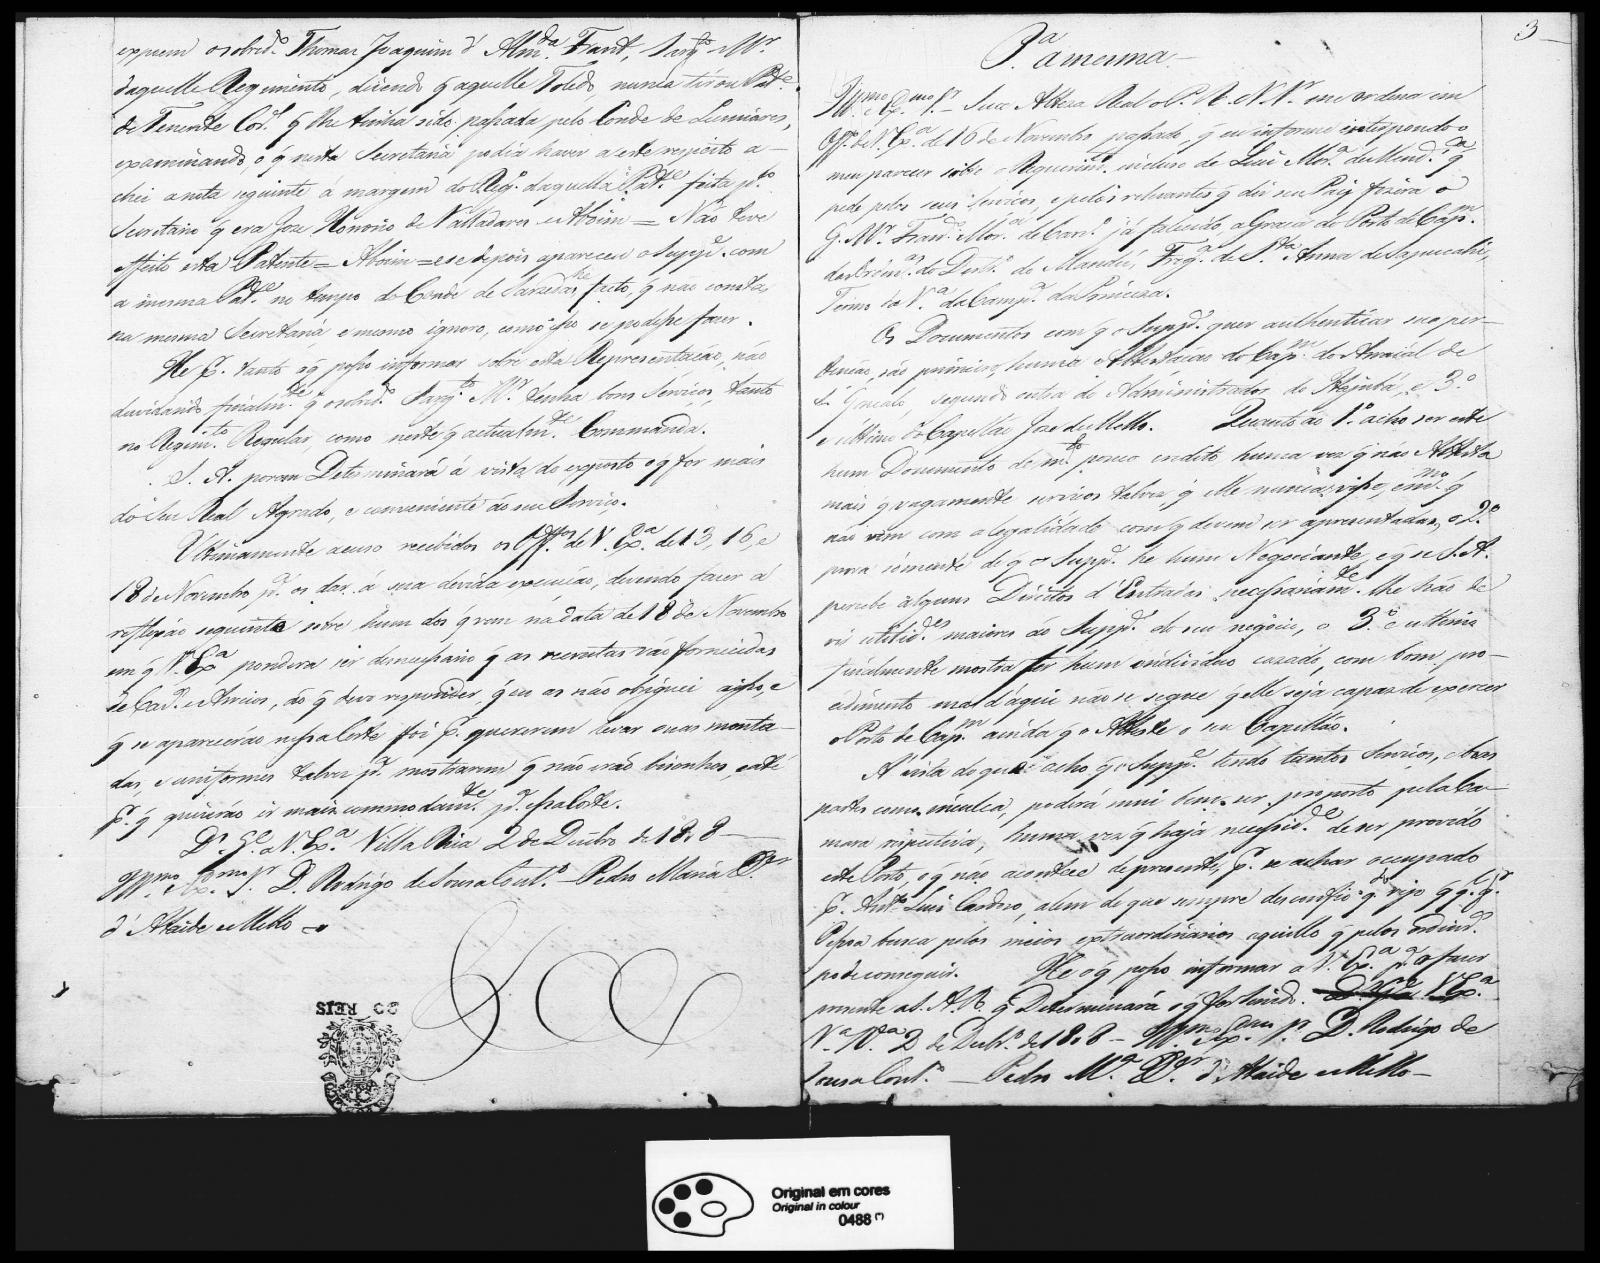 expoem o sobred.º Thomar Joaquim d' Alm.da Frant, Sarg.to M.r
daquelle Regimento, dizendo q̃ aquelle Toledo, nunca tirou Pat.e
de Tenente Cor.l q̃ lhe tinha sido passada pelo Conde de Lumiares,
examinando, o q̃ nesta Secretaria podia haver a este respeito a-
chei a nota seguinte á margem do Reg.º daquella Pat.e feita p.lo
Secretario q̃ era Joze Honorio de Valladares e Aboim = Não teve
effeito esta Patente = Aboim = e se depois apareceu o Supp.e com
a mesma Pat.e no tempo do Conde de Sarzedas he facto, q̃ não consta,
na mesma Secretaria e mesmo ignoro, como isso se podesse fazer.
He P. tanto o q̃ posso informar sobre esta Representação, não
duvidando finalm.te q̃ o sobred.º Sarg.to M.r tenha bons Serviços, tanto
no Regim.to Regular, como neste q̃ actualm.te Commanda.
S. A. porem Determinará á vista do exposto o q̃ for mais
do Seu Real Agrado, e conveniente ao seu Serviço.
Ultimamente acuso recebidos os Off.os de V. Ex.a de 13, 16, e
18 de Novembro p.ª os dar á sua devida execução, devendo fazer a
reflexão seguinte sobre hum dos q̃ vem na data de 18 de Novembro
em q̃ V. Ex.a pondera ser desnecessario q̃ as recrutas vão fornecidas
de Cav.os e Arreios, ao q̃ devo responder, q̃ eu os não obriguei a isso, e
q̃ se aparecerão nessa Corte foi P. quererem levar suas monta-
das, e uniformes talvez p.ª mostrarem q̃ não erão bisonhos, e até
P. q̃ quizerão ir mais commodam.te p.ª essa Corte.
D.s G.e a V. Ex.a Villa Rica 2 de Dezbro de 1808 —
Ill.mo e Ex.mo S.r D. Rodrigo de Sousa Cout.º — Pedro Maria X.er
d' Ataide e Mello —
20 REIS
3
P.a a mesma —
Ill.mo e Ex.mo S.r — Sua Alteza Real o P. R. N. S.r me ordena em
Off.º de V. Ex.a de 16 de Novembro passado, q̃ eu informe interpondo o
meu parecer sobre o Requerim.to incluso de Luis Mor.a de Mend.ça q̃
pede pelos seus serviços, e pelos relevantes q̃ diz seu Pay fizera o
G. M.r Fran.co Mor.a de Carv.º já falecido, a Graça do Posto de Cap.m
das Orden.as do Distr.º de Mandú, Freg.a de S.ta Anna de Sapucahi,
Termo da V.a da Camp.a da Princeza.
Os Documentos com q̃ o Supp.e quer authenticar sua per-
tenção, são primeiro, huma Attestação do Cap.m do Arraial de
S. Gonçalo, segundo outra do Administrador de Itajubá, e 3.º
e ultimo do Capellão Joze de Mello. Quanto ao 1.º acho ser este
hum Documento de m.to pouco credito huma vez q̃ não Attesta
mais q̃ vagamente serviços talvez q̃ elle nunca visse, e m.mo q̃
não vem com a legalidade com q̃ devem ser apresentadas, o 2.º
prova somente de q̃ o Supp.e he hum Negociante, e q̃ se S. A.
percebe alguns Direitos d' Entradas, necessariam.te lhe hão de
vir utilid.es maiores do Supp.e do seu negocio, o 3.º e ultimo
finalmente mostra ser hum individuo cazado, com bom pro-
cedimento mas d'aqui não se segue q̃ elle seja capaz de exercer
o Posto de Cap.m ainda q̃ o Atteste o seu Capellão.
A' vista do que acho q̃ o Supp.e tendo tantos Serviços, e boas
partes como inculca, poderá mui bem ser proposto pela Ca-
mara respectiva, huma vez q̃ haja necessid.e de ser provido
este Posto, o q̃ não acontece de presente, P. se achar occupado
P. Ant.º Luis Cardozo, alem de que sempre desconfio q.do vejo q̃ q.l q.r
Pessoa busca pelos meios extraordinarios aquillo q̃ pelos ordin.os
pode conseguir. He o q̃ posso informar a V. Ex.a p.a o fazer
prezente a S. A. R. q̃ Determinará o q̃ for servido. D.s G.e a V. Ex.a
V.a R.ca 2 de Dezbr.º de 1808 — Ill.mo e Ex.mo S.r D. Rodrigo de
Sousa Cout.º — Pedro M.a X.er d' Ataide e Mello —
Original em cores
Original in colour
0488 (*)